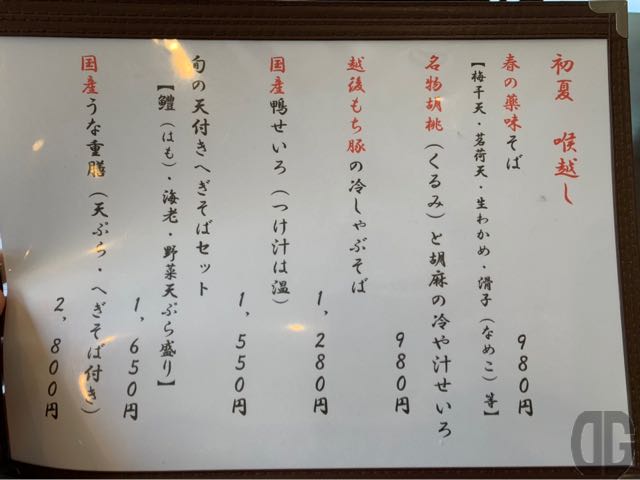 初夏 喉越し
春の薬味そば
980円
【梅干天・茗荷天・生わかめ・滑子(なめこ)等】
名物胡桃(くるみ)と胡麻の冷や汁せいろ
980円
越後もち豚の冷しゃぶそば
1,280円
国産鴨せいろ(つけ汁は温)
1,550円
旬の天付きへぎそばセット
【鱧(はも)・海老・野菜天ぷら盛り】
1,650円
国産うな重膳(天ぷら・へぎそば付き)
2,800円
DG